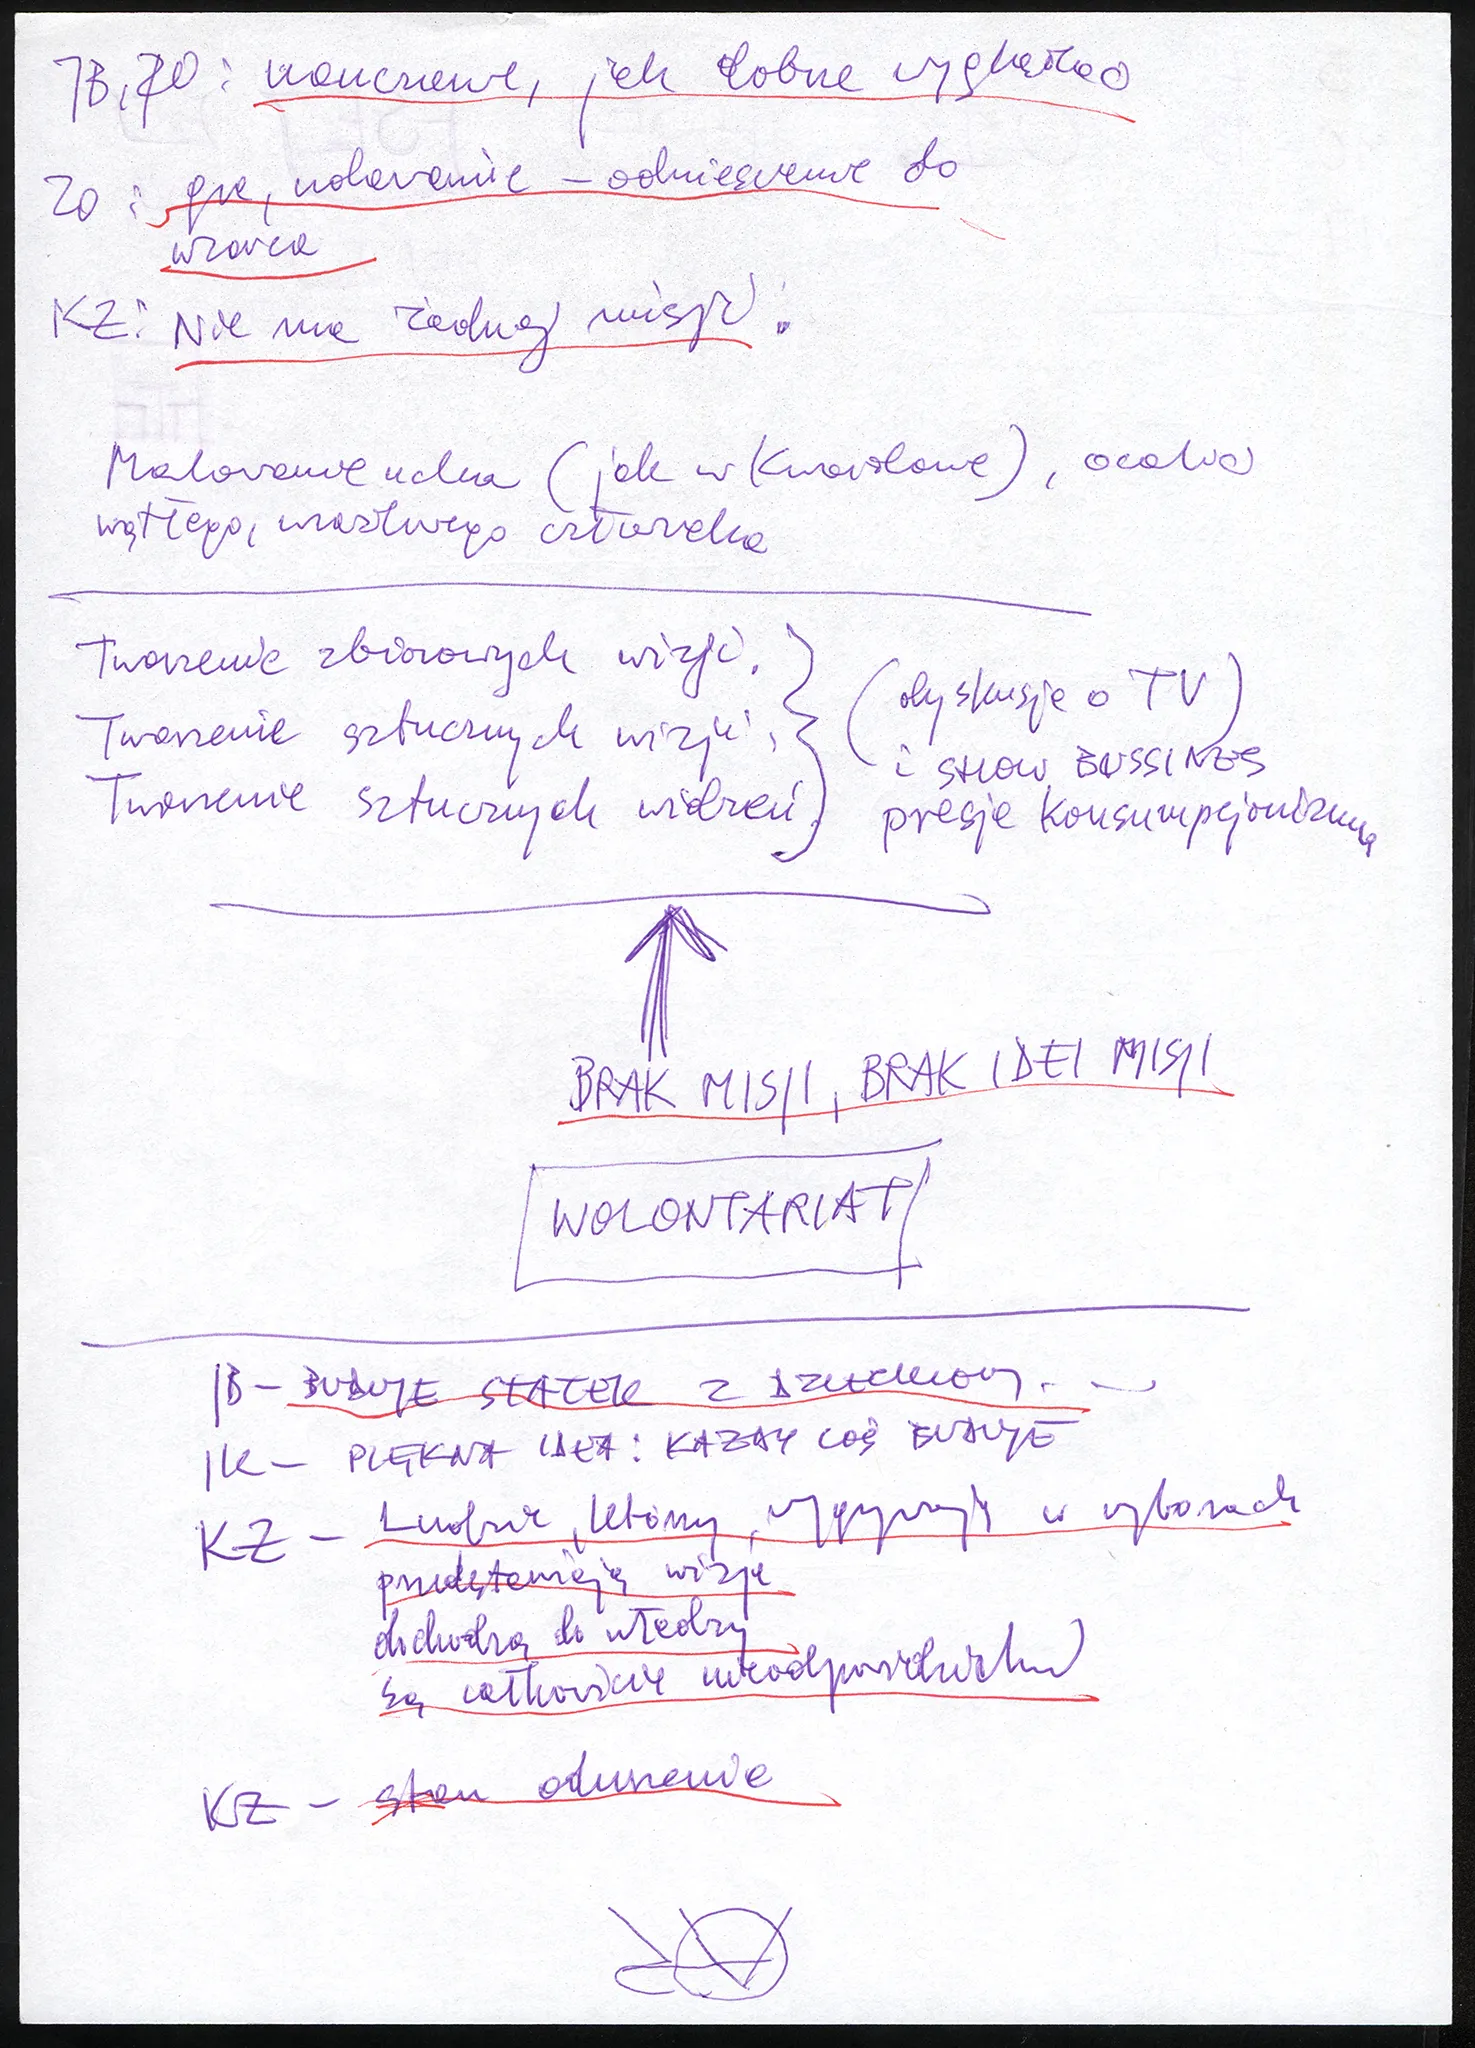 JB, ZO: nauczenie, jak dobrze wyglądać
ZO: gra, udawanie – odniesienie do
wzorca
KZ: Nie ma żadnej misji!
Malowanie ucha (jak w Krakowie), ocalić
wątłego, wrażliwego człowieka
Tworzenie zbiorowych wizji.
Tworzenie sztucznych wizji.
Tworzenie sztucznych widzeń.
(dyskusje o TV)
i SHOW BUSSINES
presje konsumpcjonizmu
BRAK MISJI, BRAK IDEI MISJI
WOLONTARIAT
JB – BUDUJE STATEK Z DZIECKIEM.
IK – PIĘKNA IDEA: KAŻDY COŚ BUDUJE
KZ – Ludzie, którzy wygrywają w wyborach
przedstawiają wizje
dochodzą do władzy
są całkowicie nieodpowiedzialni
KZ – stan odurzenia